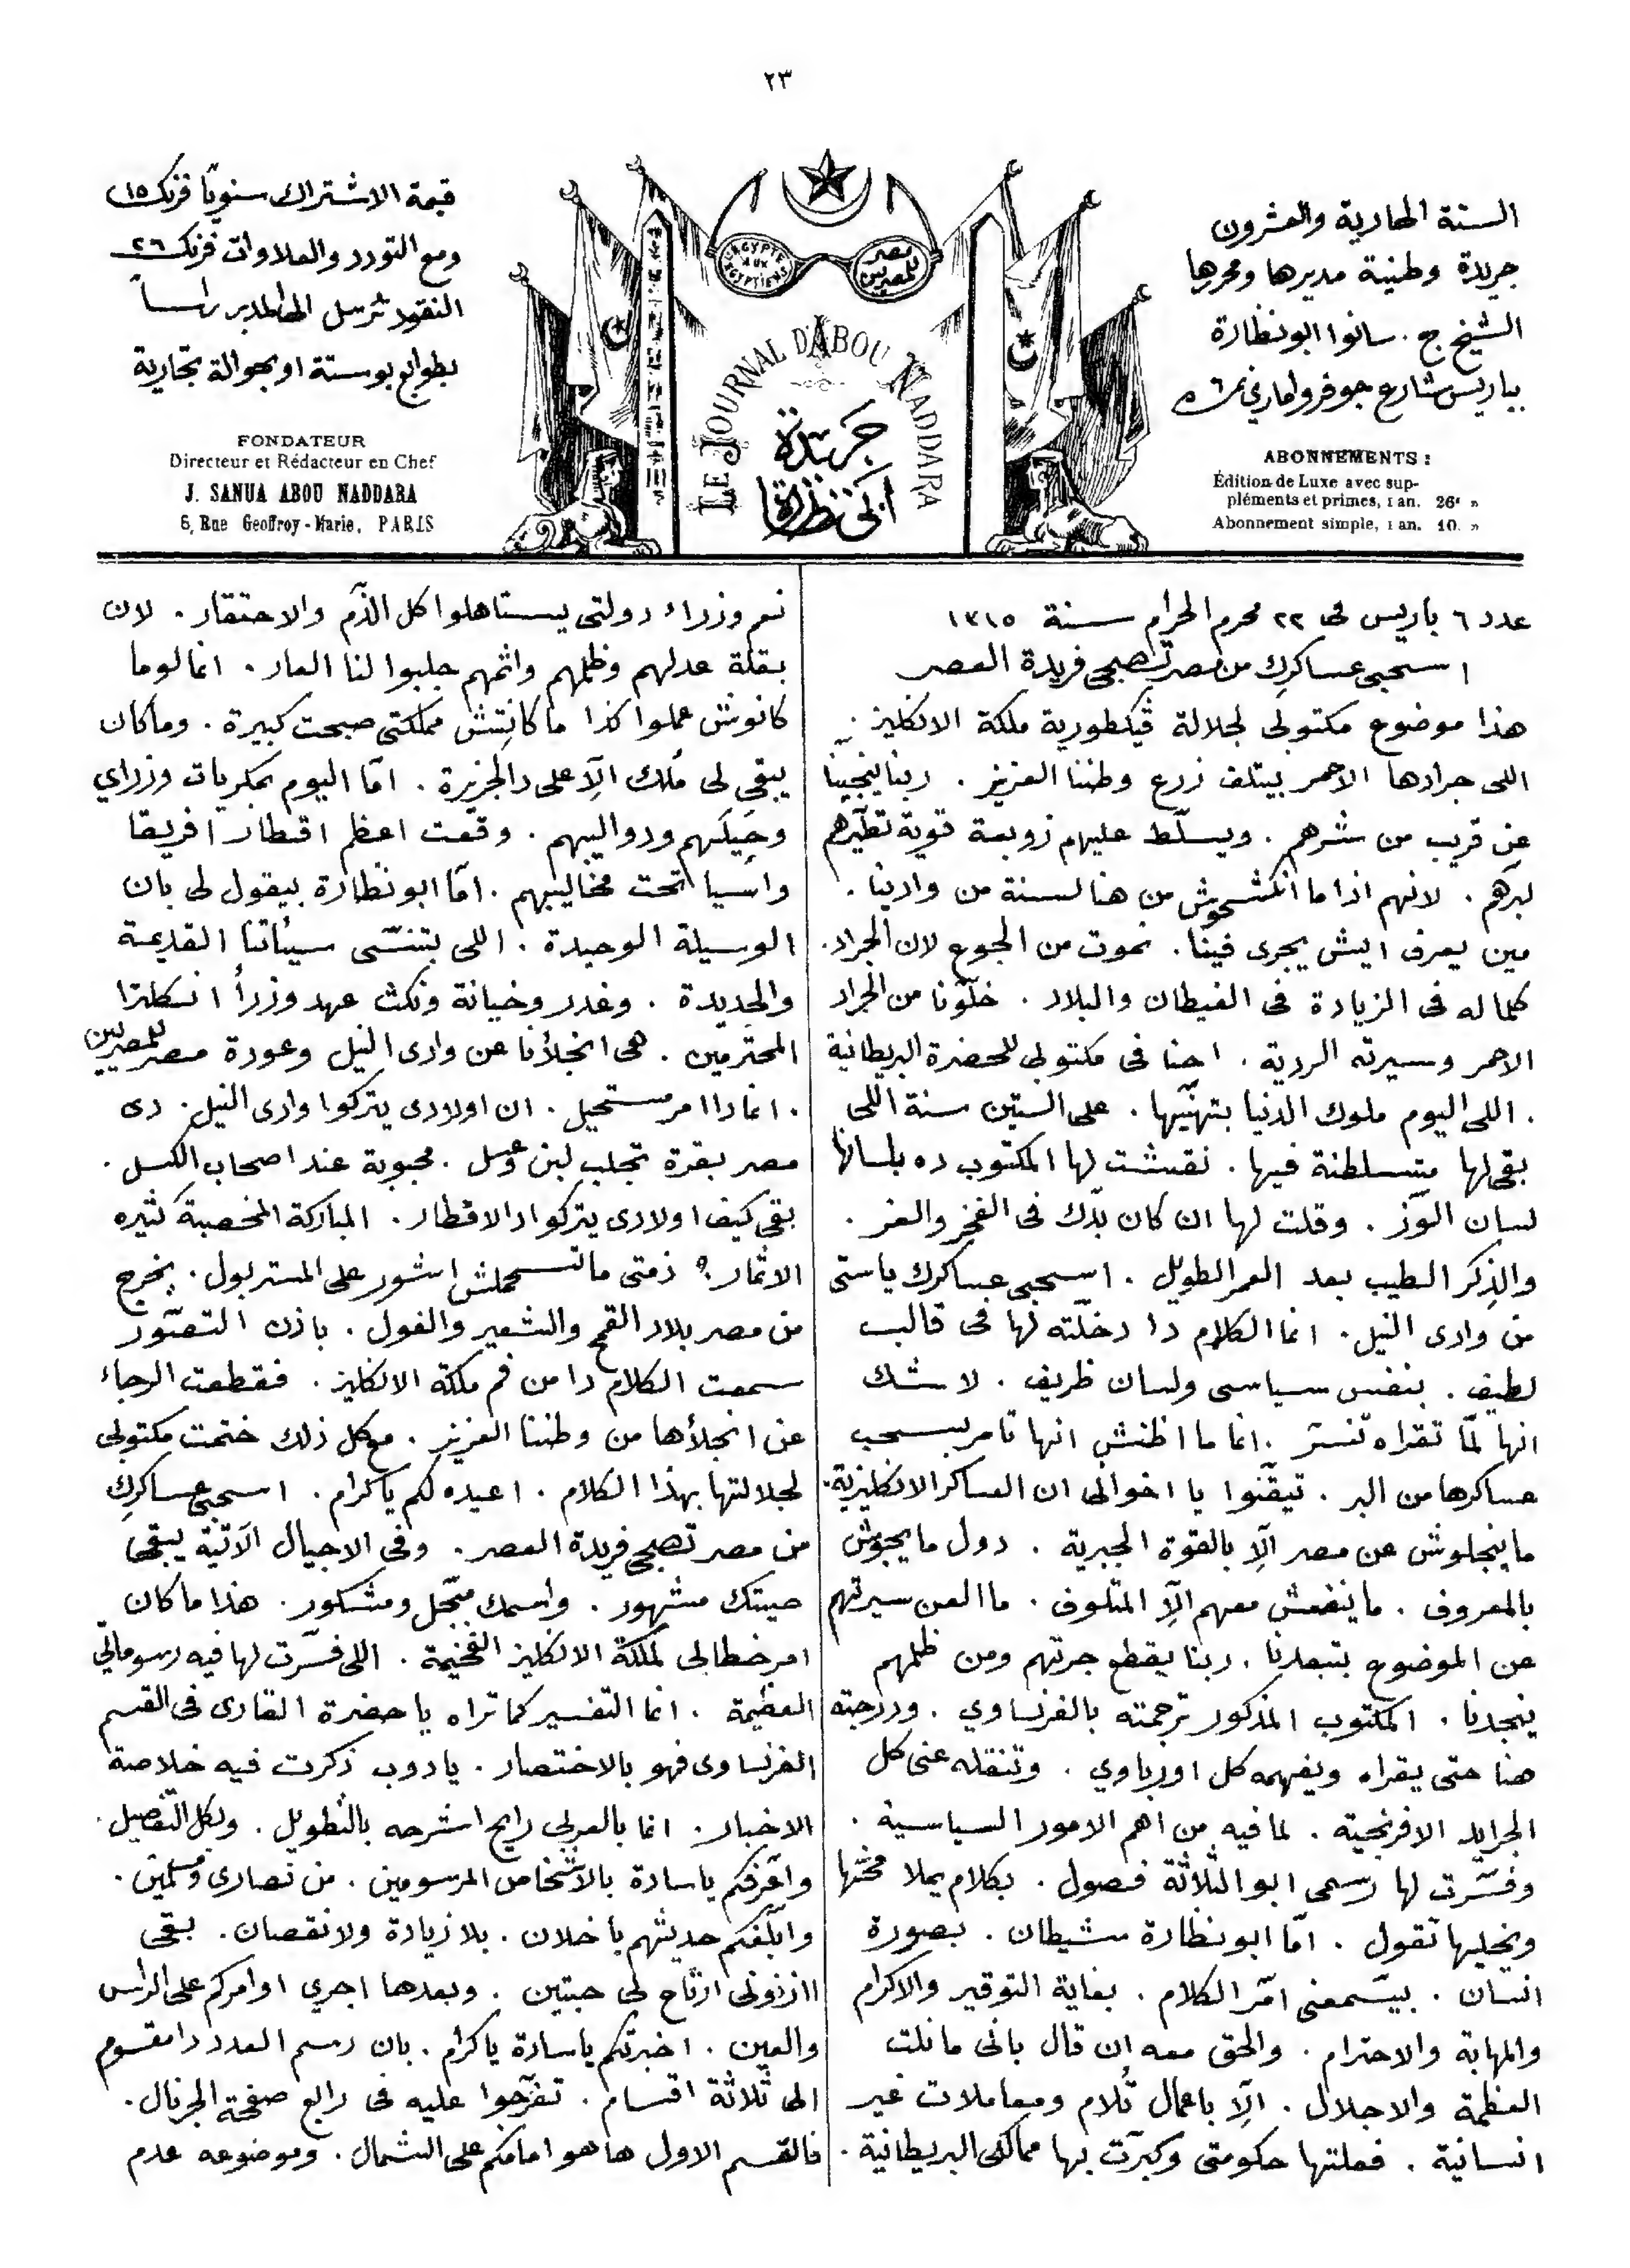 ٢٣
السنة الحادية والعشرون
جريدة وطنية مديرها ومحررها
الشيخ ج. سانوا ابو نظارة
بباريس شارع جوفروا ماري نمرة ٦
ABONNEMENTS :
Édition de Luxe avec sup-
pléments et primes, 1 an. 26f »
Abonnement simple, 1 an. 10. »
L'EGYPTE AUX EGYPTIENS
مصر للمصريين
LE JOURNAL D'ABOU NADDARA
جريدة
ابى نظارة
قيمة الاشتراك سنويًا فرنك ١٥
ومع التورد والعلاوات فرنك ٢٦
النقود ترسل الى المدير راسًا
بطوابع بوستة او بحوالة تجارية
FONDATEUR
Directeur et Rédacteur en Chef
J. SANUA ABOU NADDARA
6, Rue Geoffroy-Marie, PARIS
عدد ٦ باريس فى ٢٢ محرم الحرام سنة ١٣١٥
اسحبى عساكرك من مصر تصبحى فريدة العصر
هذا موضوع مكتوبى لجلالة ڤيكطورية ملكة الانكليز .
اللى جرادها الاحمر بيتلف زرع وطننا العزيز . ربنا ينجينا
عن قريب من شرهم . ويسلّط عليهم زوبعة قوية تطيّرهم
لبرّهم . لانهم اذا ما انكشحوش من هنا لسنة من وادينا .
مين يعرف ايش يجرى فينا . نموت من الجوع لان الجراد .
كلما له فى الزيادة فى الغيطان والبلاد . خلّونا من الجراد
الاحمر وسيرته الردية . احنا فى مكتوبى للحضرة البريطانية
. اللى اليوم ملوك الدنيا بتهنّيها . على الستين سنة اللى
بقى لها متسلطنة فيها . نقشت لها المكتوب ده بلسانها
لسان الوزّ . وقلت لها ان كان بدّك فى الفخر والعز .
والذِكر الطيب بعد العمر الطويل . اسحبى عساكرك ياستى
من وادى النيل . انما الكلام دا دخلّته لها فى قالب
لطيف . بنفس سياسى ولسان ظريف . لا شك
انها لمّا تقراه تنسرّ . انما ما اظنش انها تامر بسحب
عساكرها من البر . تيقّنوا يا اخوانى ان العساكر الانكليزية .
ما ينجلوش عن مصر الّا بالقوة الجبرية . دول ما يجوش
بالمعروف . ما ينفعش معهم الّا المتلوف . ما العن سيرتهم
عن الموضوع بتبعدنا . ربنا يقطع جرتهم ومن ظلمهم
ينجدنا . المكتوب المذكور ترجمته بالفرنساوي . ودرجته
هنا حتى يقراه ويفهمه كل اورباوي . وتنقله عنى كل
الجرايد الافرنجية . لما فيه من اهم الامور السياسية .
وفسّرت لها رسمى ابو الثلاثة فصول . بكلام يملا مخّها
ويخليها تقول . امّا ابو نظارة شيطان . بصورة
انسان . بيسّمعنى امّر الكلام . بغاية التوقير والاكرام
والمهابة والاحترام . والحق معه ان قال بانى ما نلت
العظمة والاجلال . الّا باعمال تُلام ومعاملات غير
انسانية . فعلتها حكومتى وكبرّت بها ممالكى البريطانية .
نعم وزراء دولتى يستاهلوا كل الذّم والاحتقار . لان
بقلة عدلهم وظلمهم واثمهم جلبوا لنا العار . انما لو ما
كانوش عملوا كذا ما كانِتش مملكتى صبحت كبيرة . وما كان
يبقى لى مُلك الّا على دالجزيرة . امّا اليوم بمكريات وزراي
وحِيَلهم ودواليبهم . وقّعت اعظم اقطار افريقا
واسيا تحت مخاليبهم . امّا ابو نظارة بيقول لى بان
الوسيلة الوحيدة . اللى بتنسّى سيئاتنا القديمة
والجديدة . وغدر وخيانة ونكث عهد وزرأ انكلترا
المحترمين . هى انجلأنا عن وادى النيل وعودة مصر للمصريين
. انما دا امر مستحيل . ان اولادى يتركوا وادى النيل . دى
مصر بقرة تجلب لبن وعسل . محبوبة عند اصحاب الكسل .
بقى كيف اولادى يتركوا دالاقطار . المباركة المخصبة كثيره
الاثمار ؟ ذمتى ما تسمحلش اشور على المستر بول . يخرج
من مصر بلاد القمح والشعير والفول . باذن التصّور
سمعت الكلام دا من فم ملكة الانكليز . فقطعت الرجاء
عن انجلأها من وطننا العزيز . مع كل ذلك ختمت مكتوبى
لجلالتها بهذا الكلام . اعيده لكم يا كرام . اسحبى عساكرك
من مصر تصبحى فريدة العصر . وفى الاجيال الآتية يبقى
صيتك مشهور . واسمك مبّجل ومشكور . هذا ما كان
امر خطابى لملكة الانكليز الفخيمة . اللى فسّرت لها فيه رسوماتي
العظيمة . انما التفسير كما تراه يا حضرة القارى فى القسم
الفرنساوى فهو بالاختصار . يادوب ذكرت فيه خلاصة
الاخبار . انما بالعربى رايح اشرحه بالتطويل . وبكل التفصيل .
واعّرفكم ياسادة بالاشخاص المرسومين . من نصارى ومسلمين .
وابلّغكم حديثهم يا خلان . بلا زيادة ولا نقصان . بقى
ااذنونى ارتاح لى حبتين . وبعدها اجري اوامركم على الراس
والعين . اخبرتكم ياسادة يا كرام . بان رسم العدد دا مقسوم
الى ثلاثة اقسام . تفرّجوا عليه فى رابع صفحة الجرنال .
فالقسم الاول ها هو امامكم على الشمال . وموضوعه عدم